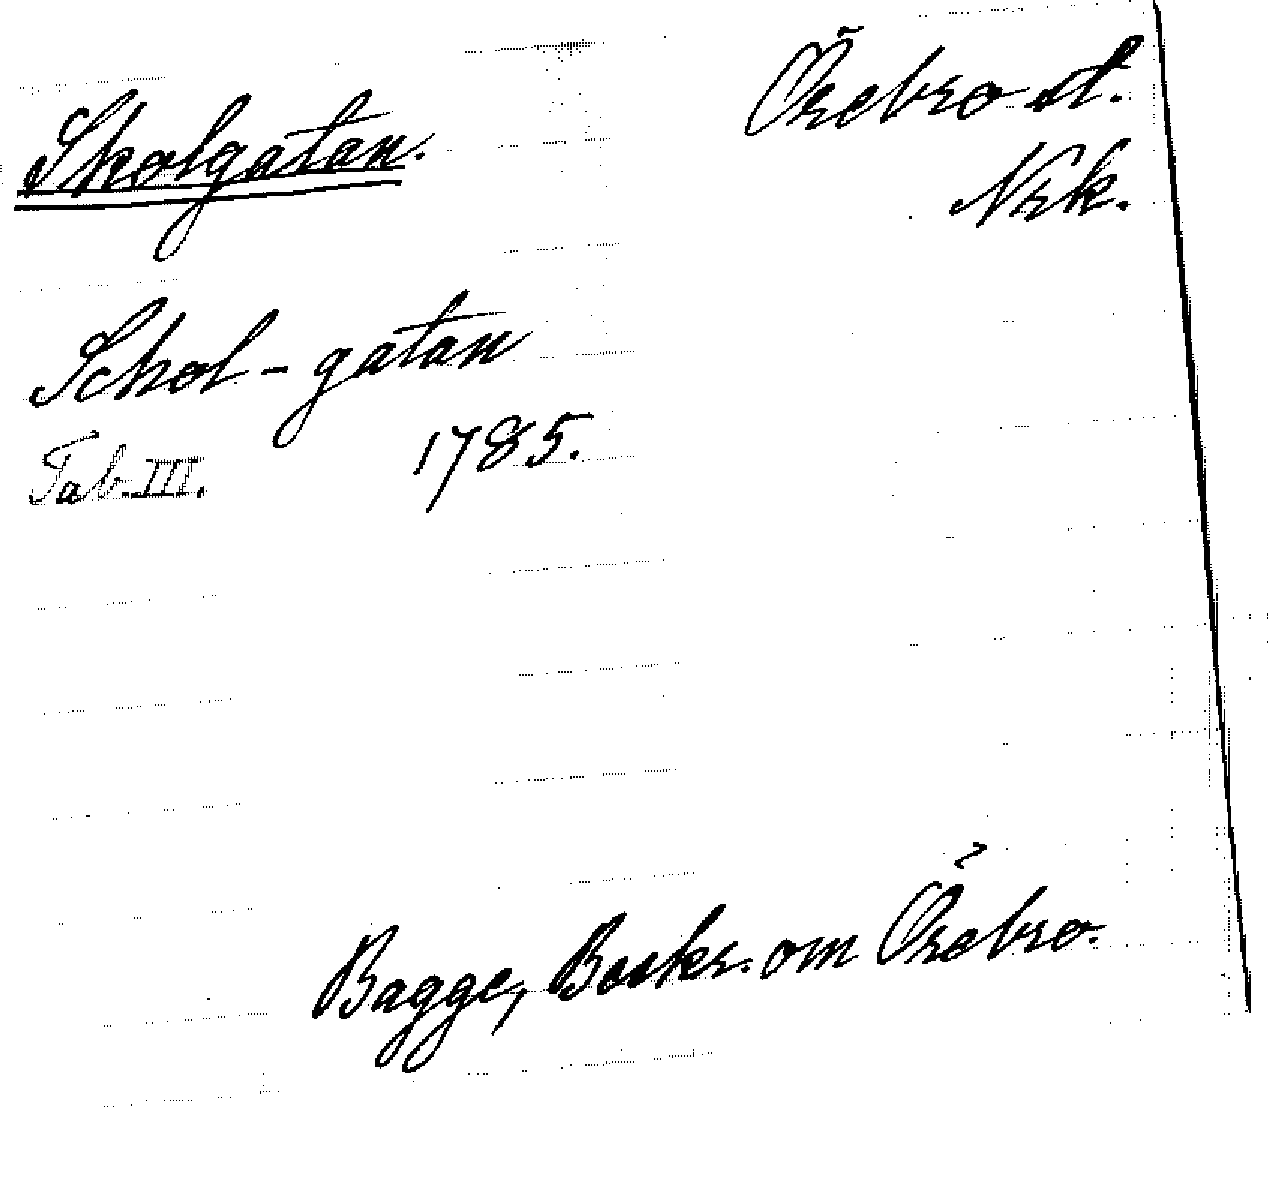 Skolgatan.
Örebro st.
Nrk.
Schol-gatan
Tab. III. 1785.
Bagge, Beskr. om Örebro.